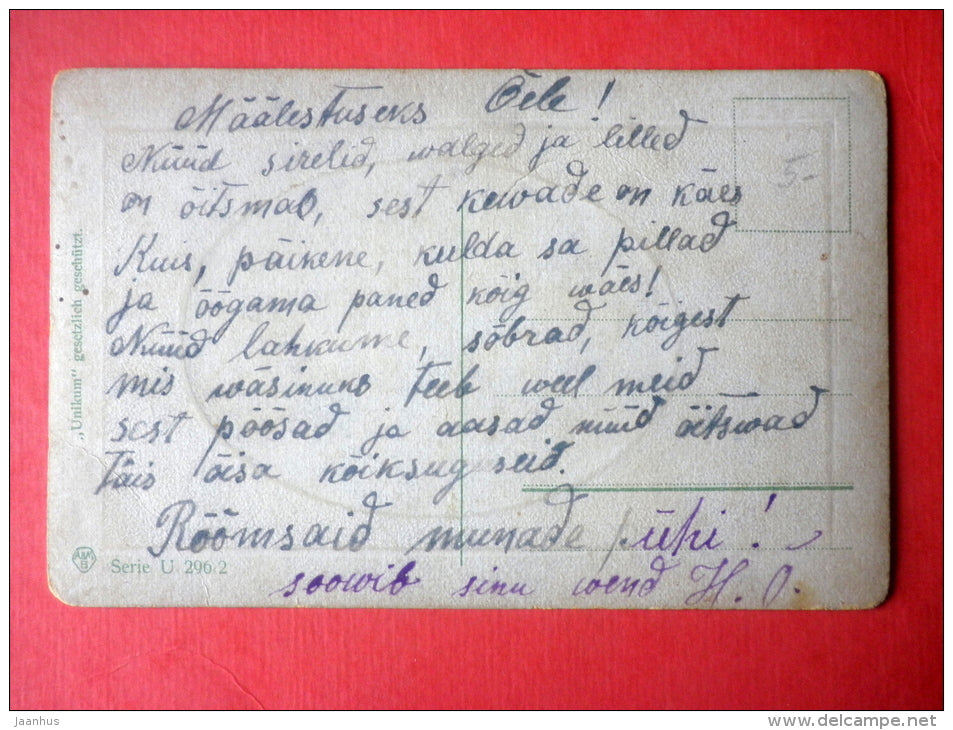 Määlestuseks Õele!
Nüüd sirelid, walged ja lilled
on õitsmas, sest kewade on käes
Kuis, päikene, kulda sa pillad
ja õõgama paned kõig wäes!
Nüüd lahkume, sõbrad, kõigest
mis wäsinuks teeb weel meid
sest põõsad ja aasad nüüd õitswad
täis õisa kõiksuguseid.
Rõõmsaid munade pühi!
soowib sinu wend H. O.
5-
„Unikum" gesetzlich geschützt.
Serie U 296/2
Jaanhus
www.delcampe.net